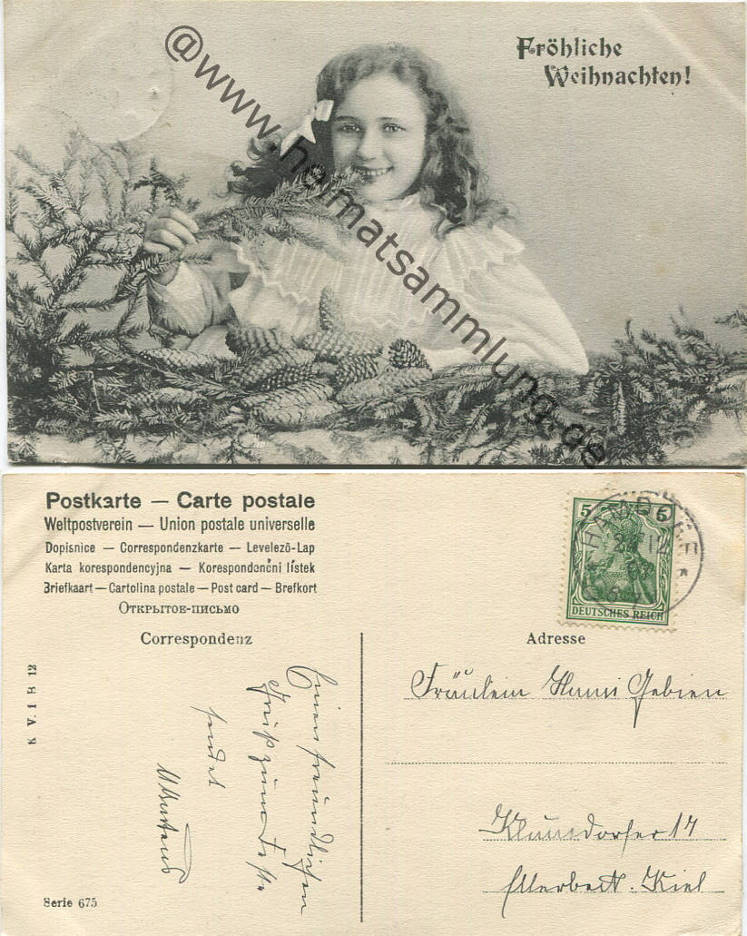 Fröhliche
Weihnachten!
@www.heimatsammlung.de
Postkarte — Carte postale
Weltpostverein — Union postale universelle
Dopisnice — Correspondenzkarte — Levelező-Lap
Karta korespondencyjna — Korespondenční lístek
Briefkaart — Cartolina postale — Post card — Brefkort
Открытое-письмо
5 5
DEUTSCHES REICH
Correspondenz
Adresse
K V. 1 B 12
Einen freundlichen
Gruß zum Feste
sendet
Fräulein Hansi Gebien
Klausdorfer 17
Ellerbek. Kiel
Serie 675